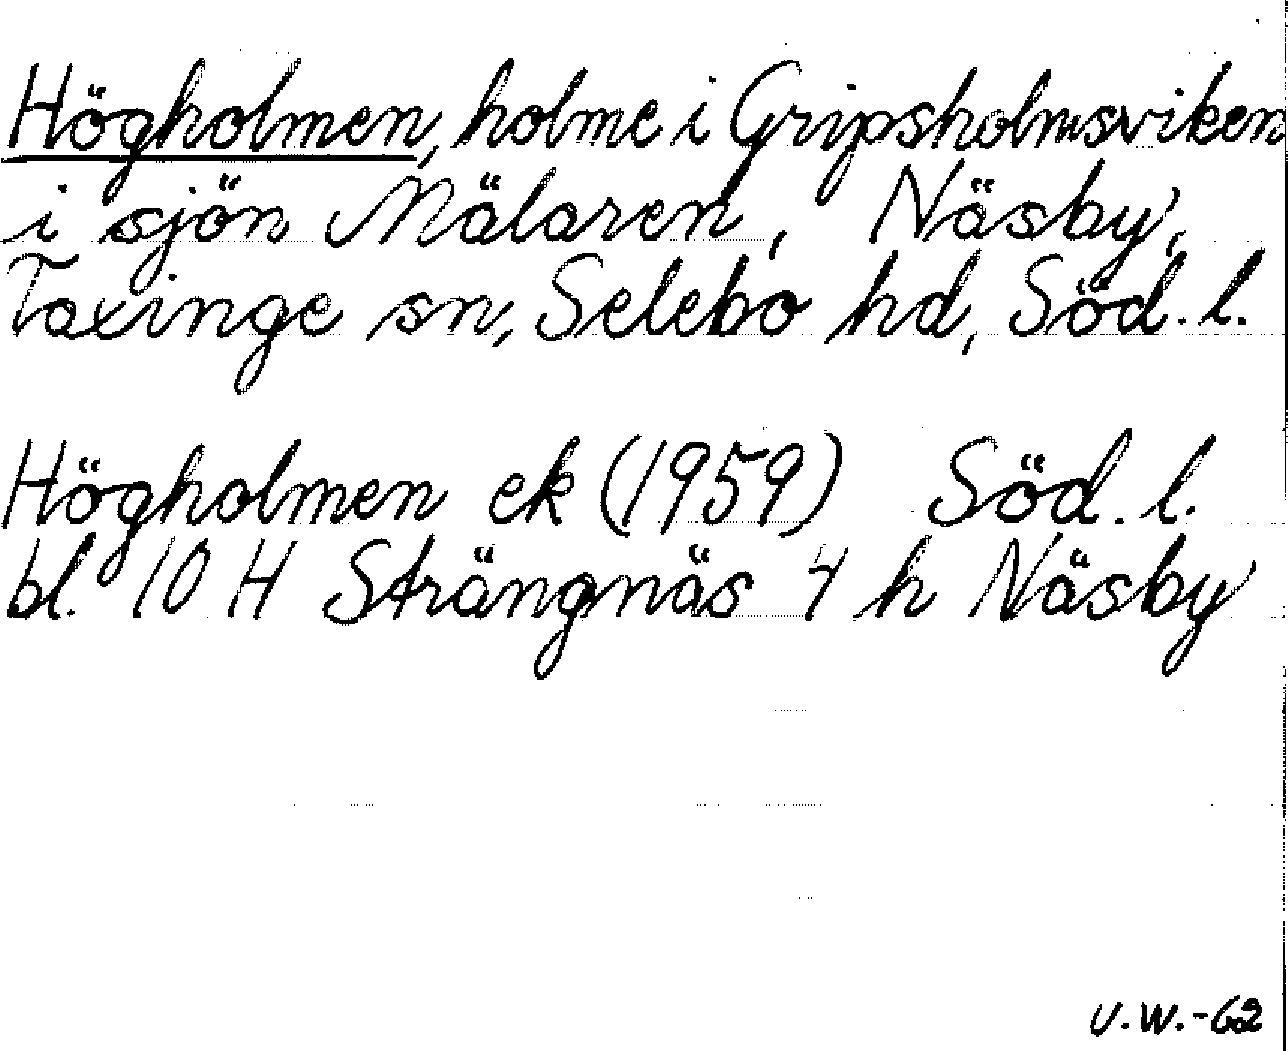 Högholmen, holme i Gripsholmsviken
i sjön Mälaren, Näsby,
Taxinge sn, Selebo hd, Söd. l.
Högholmen ek (1959) Söd. l.
bl. 10 H Strängnäs 4 h Näsby
U.W.-62